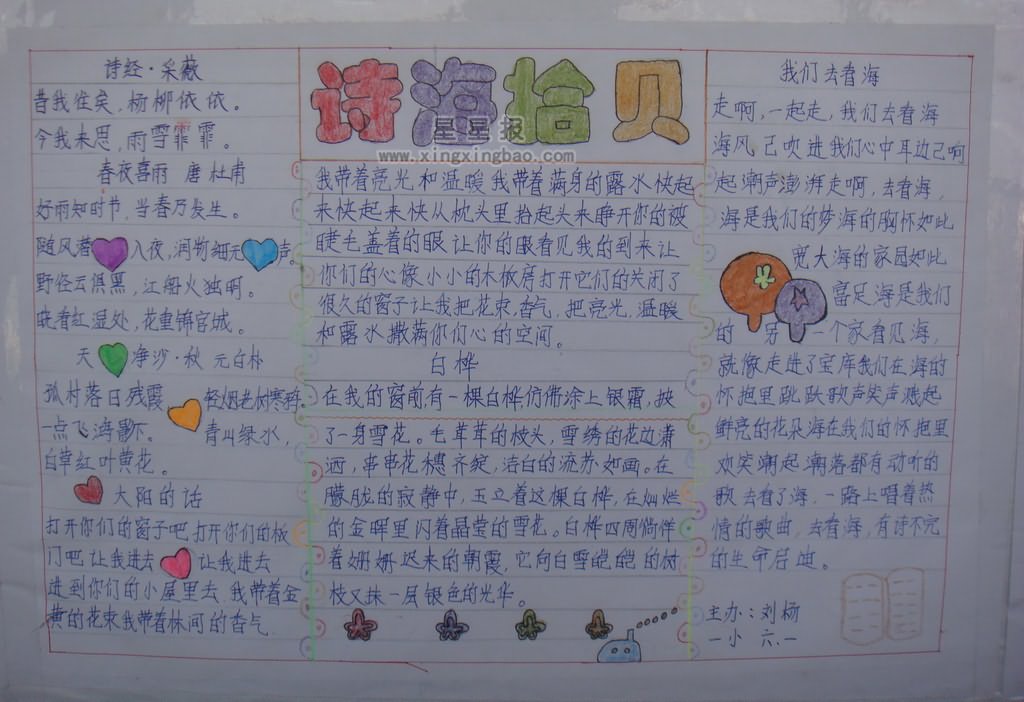 诗经·采薇
昔我往矣,杨柳依依。
今我来思,雨雪霏霏。
春夜喜雨 唐 杜甫
好雨知时节,当春乃发生。
随风潜入夜,润物细无声。
野径云俱黑,江船火独明。
晓看红湿处,花重锦官城。
天净沙·秋 元 白朴
孤村落日残霞 轻烟老树寒鸦。
一点飞鸿影下。 青山绿水,
白草红叶黄花。
大阳的话
打开你们的窗子吧,打开你们的板
门吧 让我进去 让我进去
进到你们的小屋里去 我带着金
黄的花束我带着林间的香气
诗海拾贝
星星报
www.xingxingbao.com
我带着亮光和温暖 我带着满身的露水 快起
来快起来 快从枕头里抬起头来 睁开你的被
睫毛盖着的眼 让你的眼看见我的到来 让
你们的心像小小的木板房 打开它们的关闭了
很久的窗子 让我把花束,香气,把亮光,温暖
和露水撒满你们心的空间。
白桦
在我的窗前有一棵白桦,仿佛涂上银霜,披
了一身雪花。毛茸茸的枝头,雪绣的花边潇
洒,串串花穗齐绽,洁白的流苏如画。在
朦胧的寂静中,玉立着这棵白桦,在灿烂
的金晖里闪着晶莹的雪花。白桦四周徜徉
着姗姗迟来的朝霞,它向白雪皑皑的树
枝又抹一层银色的光华。
我们去看海
走啊,一起走,我们去看海
海风已吹进我们心中耳边已响
起潮声澎湃走啊,去看海,
海是我们的梦海的胸怀如此
宽大海的家园如此
富足海是我们
的 另一个家看见海,
就像走进了宝库我们在海的
怀抱里跳跃歌声笑声溅起
鲜亮的花朵海在我们的怀抱里
欢笑潮起潮落都有动听的
歌 去看了海,一路上唱着热
情的歌曲,去看海,有诗不完
的生命
主办:刘杨
一小 六.一